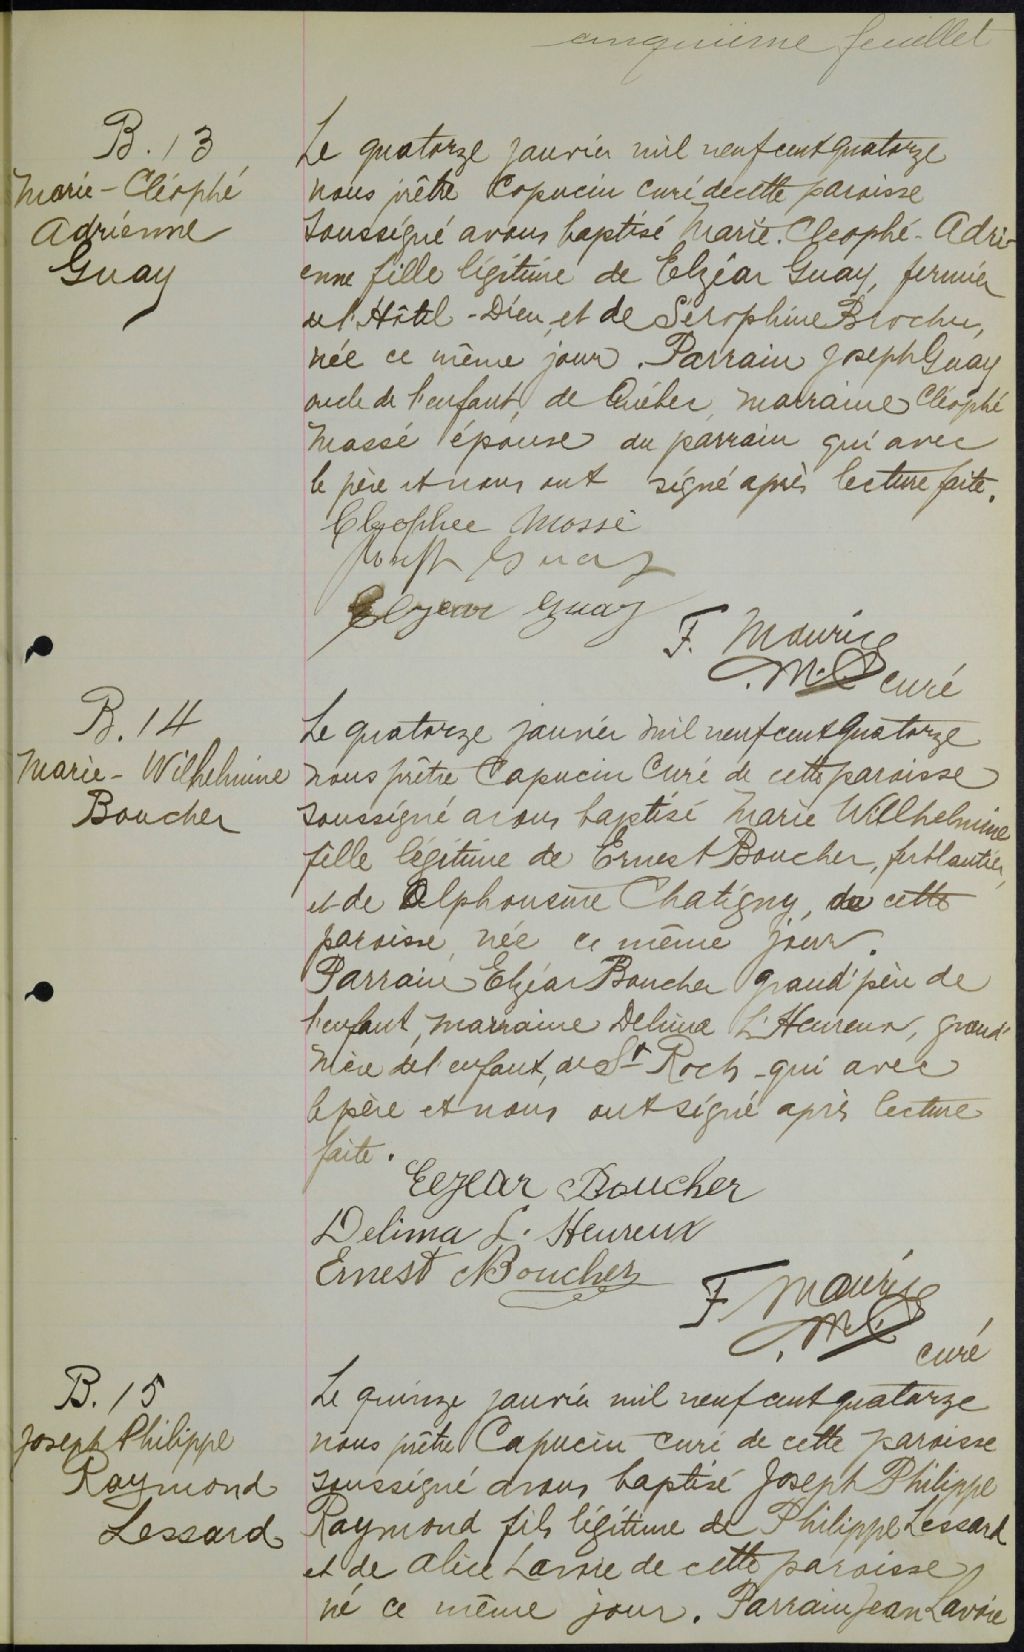 cinquième feuillet
B. 13
Marie-Cléophé
Adrienne
Guay
Le quatorze janvier mil neuf cent quatorze
nous prêtre Capucin curé de cette paroisse
soussigné avons baptisé Marie. Cleophé-Adri-
enne fille légitime de Elzéar Guay, fermier
de l'Hôtel-Dieu, et de Séraphine Brochu,
née ce même jour. Parrain Joseph Guay
oncle de l'enfant, de Québec, marraine Cléophé
Massé épouse du parrain qui avec
le père et nous ont signé après lecture faite.
Cleophee Massé
Joseph Guay
Elzear Guay
F. Maurice
M. C. curé
B. 14
Marie-Wilhelmine
Boucher
Le quatorze janvier mil neuf cent quatorze
nous prêtre Capucin Curé de cette paroisse
soussigné avons baptisé Marie Wilhelmine
fille légitime de Ernest Boucher, ferblantier,
et de Alphonsine Chatigny, de cette
paroisse, née ce même jour.
Parrain Elzéar Boucher grand'père de
l'enfant, marraine Delima L'Heureux, grand'
mère de l'enfant, de St Roch qui avec
le père et nous ont signé après lecture
faite.
Elzear Boucher
Delima L. Heureux
Ernest Boucher
F Maurice
M. C. curé
B. 15
Joseph Philippe
Raymond
Lessard
Le quinze janvier mil neuf cent quatorze
nous prêtre Capucin curé de cette paroisse
soussigné avons baptisé Joseph Philippe
Raymond fils légitime de Philippe Lessard
et de Alice Lavoie de cette paroisse
né ce même jour. Parrain Jean Lavoie